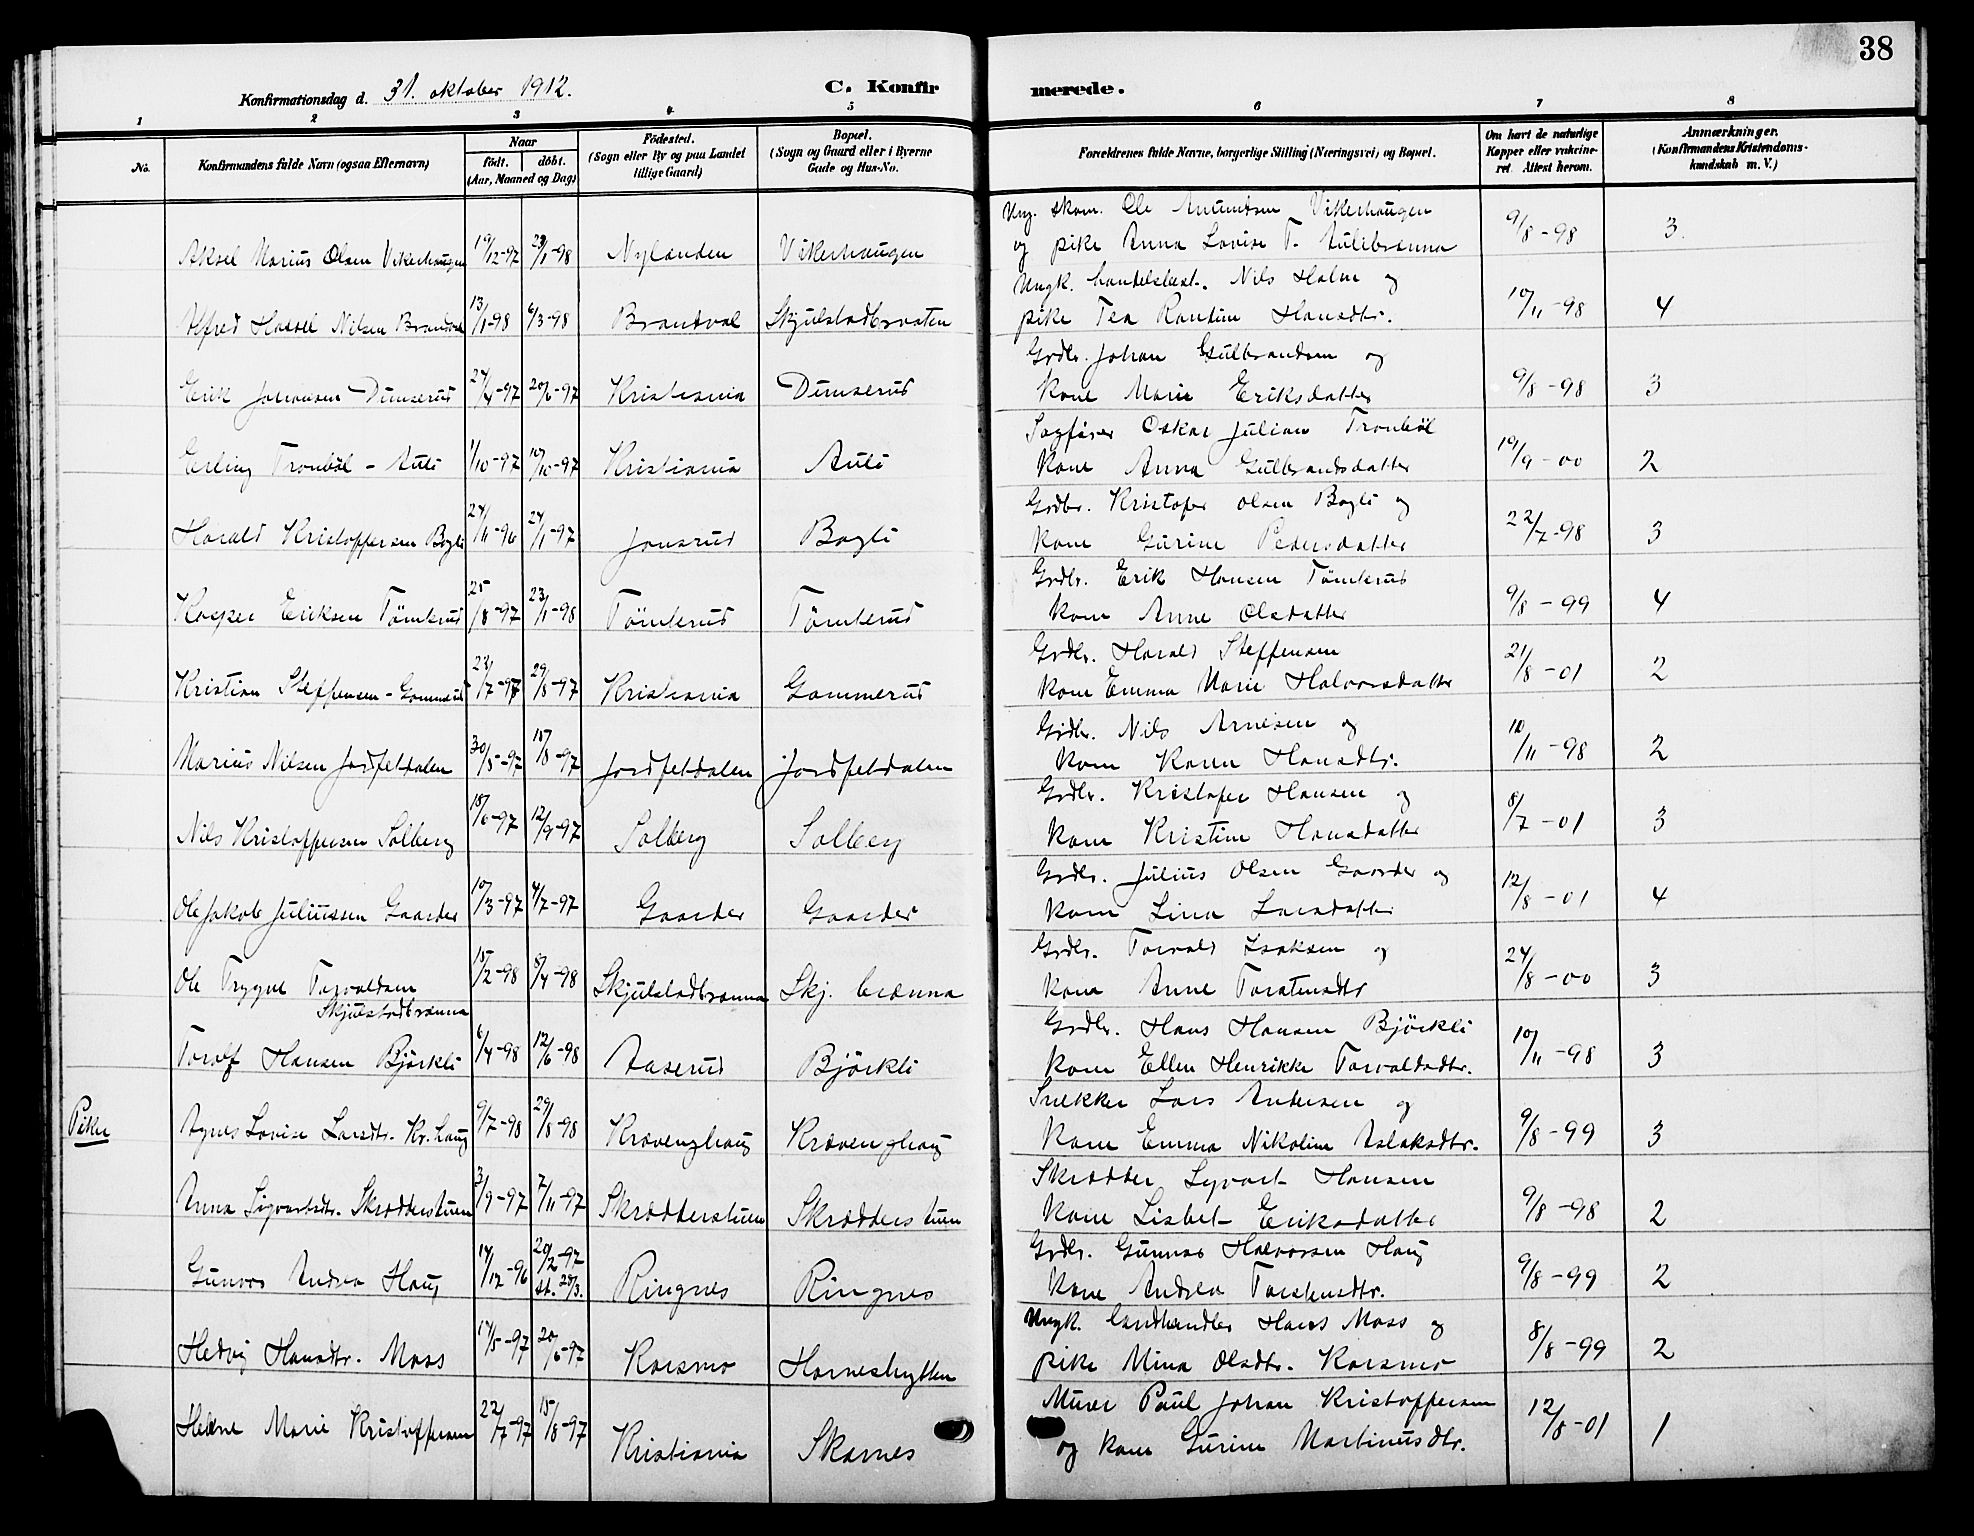 38
Konfirmationsdag d. 31. oktober 1912.
C. Konfirmerede.
1 2 3 4 5 6 7 8
No.
Konfirmandens fulde Navn (ogsaa Efternavn)
Naar
født. døbt.
(Aar, Maaned og Dag)
Fødested.
(Sogn eller By og paa Landet
tillige Gaard)
Bopæl.
(Sogn og Gaard eller i Byerne
Gade og Hus-No.
Forældrenes fulde Navne, borgerlige Stilling (Næringsvei) og Bopæl.
Om havt de naturlige
Kopper eller vakcine-
ret. Attest herom.
Anmærkninger.
(Konfirmandens Kristendoms-
kundskab m. V.)
Ung. skom. Ole Amundsen Vikerhaugen
Aksel Marius Olsen Vikerhaugen 19/12-97 23/1-98 Nylanden Vikerhaugen og pike Anna Lovise T. Aulibrænna 9/8-98 3
Ungk. handelsbest. Nils Holm og
Alfred Hassel Nilsen Brandval 13/1-98 6/3-98 Brandval Skjulstadbraaten pike Tea Rantine Hansdtr. 10/11-98 4
Grdbr. Johan Gulbrandsen og
Erik Johansen Dumserud 24/4-97 20/6-97 Kristiania Dumserud kone Marie Eriksdatter 9/8-98 3
Sagfører Oskar Julian Tronbøl
Erling Tronbøl-Auli 1/10-97 10/10-97 Kristiania Auli kone Anna Gulbrandsdatter 19/9-00 2
Grdbr. Kristofer Olsen Bogli og
Harald Kristoffersen Bogli 24/11-96 24/1-97 Jonsrud Bogli kone Gurine Pedersdatter 22/7-98 3
Grdbr. Erik Hansen Tømterud
Kasper Eriksen Tømterud 25/8-97 23/1-98 Tømterud Tømterud kone Anne Olsdatter 9/8-99 4
Grdbr. Harald Steffensen
Kristian Steffensen-Gommerud 23/7-97 29/8-97 Kristiania Gommerud kone Emma Marie Halvorsdatter 21/8-01 2
Grdbr. Nils Arnesen og
Marius Nilsen Jordfetdalen 30/5-97 15/8-97 Jordfetdalen Jordfetdalen kone Karen Hansdtr. 10/11-98 2
Grdbr. Kristofer Hansen og
Nils Kristoffersen Solberg 18/6-97 12/9-97 Solberg Solberg kone Kristine Hansdatter 8/7-01 3
Grdbr. Julius Olsen Gaarder og
Ole Jakob Juliussen Gaarder 10/3-97 4/7-97 Gaarder Gaarder kone Lina Larsdatter 12/8-01 4
Grdbr. Torvald Isaksen og
Ole Trygve Torvaldsen 15/2-98 8/4-98 Skjulstadbrænna Skj. brænna kone Anne Torstensdtr 24/8-00 3
Skjulstadbrænna
Grdbr. Hans Hansen Bjørkli
Torolf Hansen Bjørkli 6/4-98 12/6-98 Aaserud Bjørkli kone Ellen Henrikke Torvaldsdtr. 10/11-98 3
Piker
Snekker Lars Andersen og
Agnes Lovise Larsdtr. Kr. haug 9/7-98 29/8-98 Kravenghaug Kravenghaug kone Emma Nikoline Aslaksdtr. 9/8-99 3
Skrædder Sigvart Hansen
Anna Sigvartsdtr. Skrædderstuen 3/9-97 7/11-97 Skrædderstuen Skrædderstuen kone Lisbet Eriksdatter 9/8-98 2
Grdbr. Gunnar Halvorsen Haug
Gunvor Andrea Haug 14/12-96 20/2-97 st. 28/3. Ringnes Ringnes kone Andrea Torstensdtr. 9/8-99 2
Ungk. landhandler Hans Moss og
Hedvig Hansdtr. Moss 17/5-97 20/6-97 Korsmo Horneshytten pike Mina Olsdtr. Korsmo 8/8-99 2
Murer Paul Johan Kristoffersen
Helene Marie Kristoffersen 22/7-97 15/8-97 Kristiania Skarnes og kone Gurine Martinusdtr. 12/8-01 1